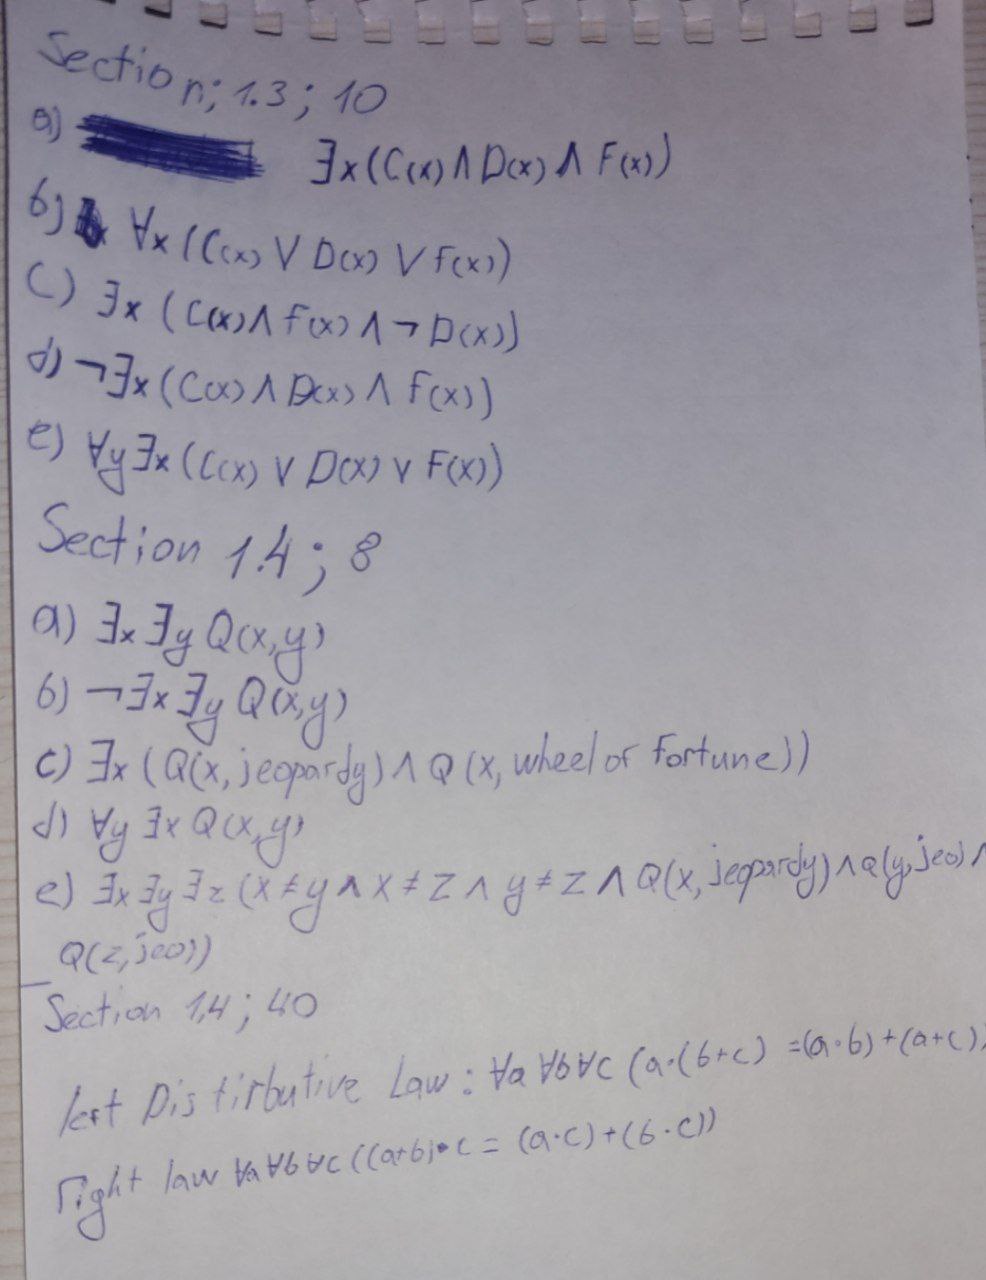 Section; 1.3; 10
a) ∃x(C(x) ∧ D(x) ∧ F(x))
b) ∀x (C(x) ∨ D(x) ∨ F(x))
C) ∃x (C(x) ∧ F(x) ∧ ¬ D(x))
d) ¬∃x (C(x) ∧ D(x) ∧ F(x))
e) ∀y ∃x (C(x) ∨ D(x) ∨ F(x))
Section 1.4; 8
a) ∃x ∃y Q(x,y)
b) ¬∃x ∃y Q(x,y)
c) ∃x (Q(x, jeopardy) ∧ Q(x, wheel of Fortune))
d) ∀y ∃x Q(x,y)
e) ∃x ∃y ∃z (x ≠ y ∧ x ≠ z ∧ y ≠ z ∧ Q(x, jeopardy) ∧ Q(y, jeo) ∧
Q(z, jeo))
Section 1.4; 40
left Distirbutive Law: ∀a ∀b ∀c (a·(b+c) =(a·b)+(a+c))
right law ∀a ∀b ∀c ((a+b)·c = (a·c)+(b·c))